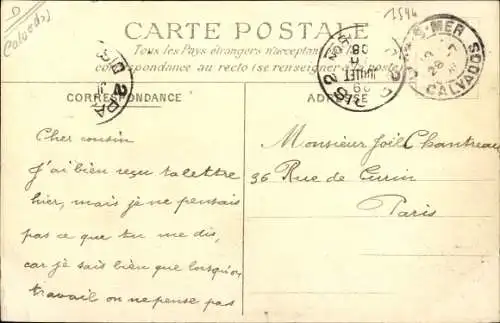 D
Calvados
1546
CARTE POSTALE
Tous les Pays étrangers n'acceptant
correspondance au recto (se renseigner à la poste)
CORRESPONDANCE
ADRESSE
S-MER
28 -7
CALVADOS
JUILLET
09
PA
Cher cousin
J'ai bien reçu ta lettre
hier, mais je ne pensais
pas ce que tu me dis,
car je sais bien que lorsqu'on
travail on ne pense pas
Monsieur Joël Chantreau
36 Rue de Turin
Paris